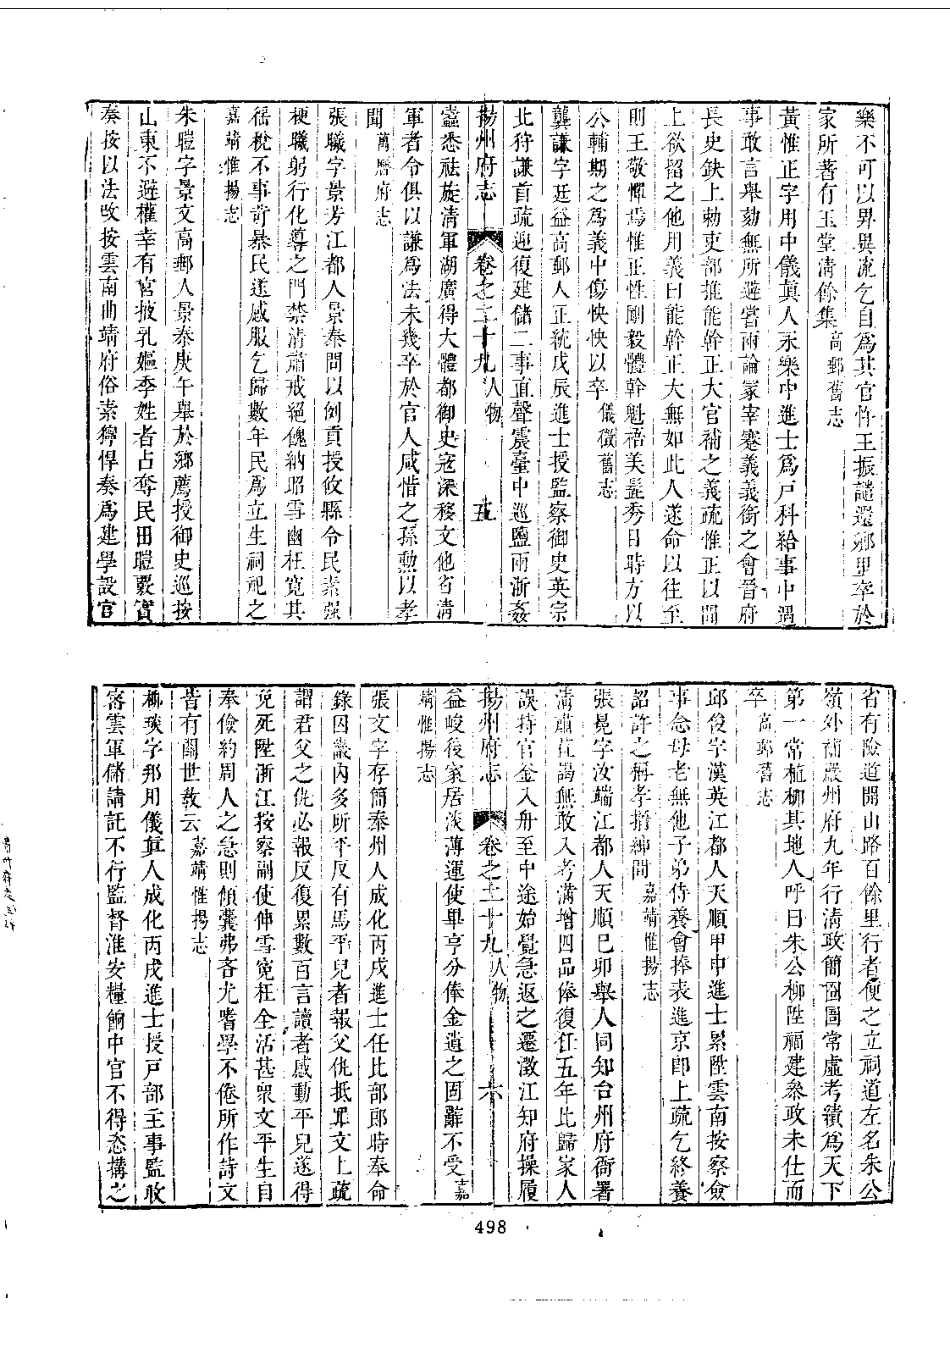 樂不可以畀異流乞自爲其官忤王振譴還鄉里卒於
家所著有玉堂淸餘集高郵舊志
黃惟正字用中儀眞人永樂中進士爲戸科給事中遇
事敢言舉劾無所避嘗面論冢宰蹇義義銜之會晉府
長史缺上勅吏部推能幹正大官補之義疏惟正以聞
上欲留之他用義曰能幹正大無如此人遂命以往至
則王敬憚焉惟正性剛毅體幹魁梧美髭秀目時方以
公輔期之爲義中傷怏怏以卒儀徵舊志
龔謙字廷益高郵人正統戊辰進士授監察御史英宗
北狩謙首疏迎復建儲二事直聲震臺中巡鹽兩浙姦
揚州府志 卷之二十九 人物 五
蠹悉祛旋淸軍湖廣得大體都御史寇深移文他省淸
軍者令俱以謙爲法未幾卒於官人咸惜之孫勲以孝
聞萬曆府志
張職字景芳江都人景泰間以例貢授攸縣令民素强
梗職躬行化導之門禁淸肅戒絕餽納昭雪幽枉寬其
徭稅不事苛暴民遂感服乞歸數年民爲立生祠祀之
嘉靖惟揚志
朱暟字景文高郵人景泰庚午舉於鄉薦授御史巡按
山東不避權幸有宮披乳嫗季姓者占奪民田暟覈實
奏按以法改按雲南曲靖府俗素獰悍奏爲建學設官
省有險道開山路百餘里行者便之立祠道左名朱公
嶺外補嚴州府九年行淸政簡囹圄常虛考績爲天下
第一常植柳其地人呼曰朱公柳陞福建參政未仕而
卒高郵舊志
邱俊字漢英江都人天順甲申進士累陞雲南按察僉
事念母老無他子弟侍養會捧表進京卽上疏乞終養
詔許之稱孝搢紳間嘉靖惟揚志
張晃字汝端江都人天順己卯舉人同知台州府衙署
淸肅苞謁無敢入考滿增四品俸復任五年比歸家人
誤持官金入舟至中途始覺急返之遷澂江知府操履
揚州府志 卷之二十九 人物 六
益峻後家居淡薄運使畢亨分俸金遺之固辭不受嘉
靖惟揚志
張文字存簡泰州人成化丙戌進士任比部郎時奉命
錄囚畿內多所平反有馬平兒者報父仇抵罪文上疏
謂君父之仇必報反復累數百言讀者感動平兒遂得
免死陞浙江按察副使伸雪寃枉全活甚衆文平生自
奉儉約周人之急則傾囊弗吝尤嗜學不倦所作詩文
皆有關世敎云嘉靖惟揚志
柳琰字邦用儀眞人成化丙戌進士授戸部主事監收
密雲軍儲請託不行監督淮安糧餉中官不得恣搆之
498